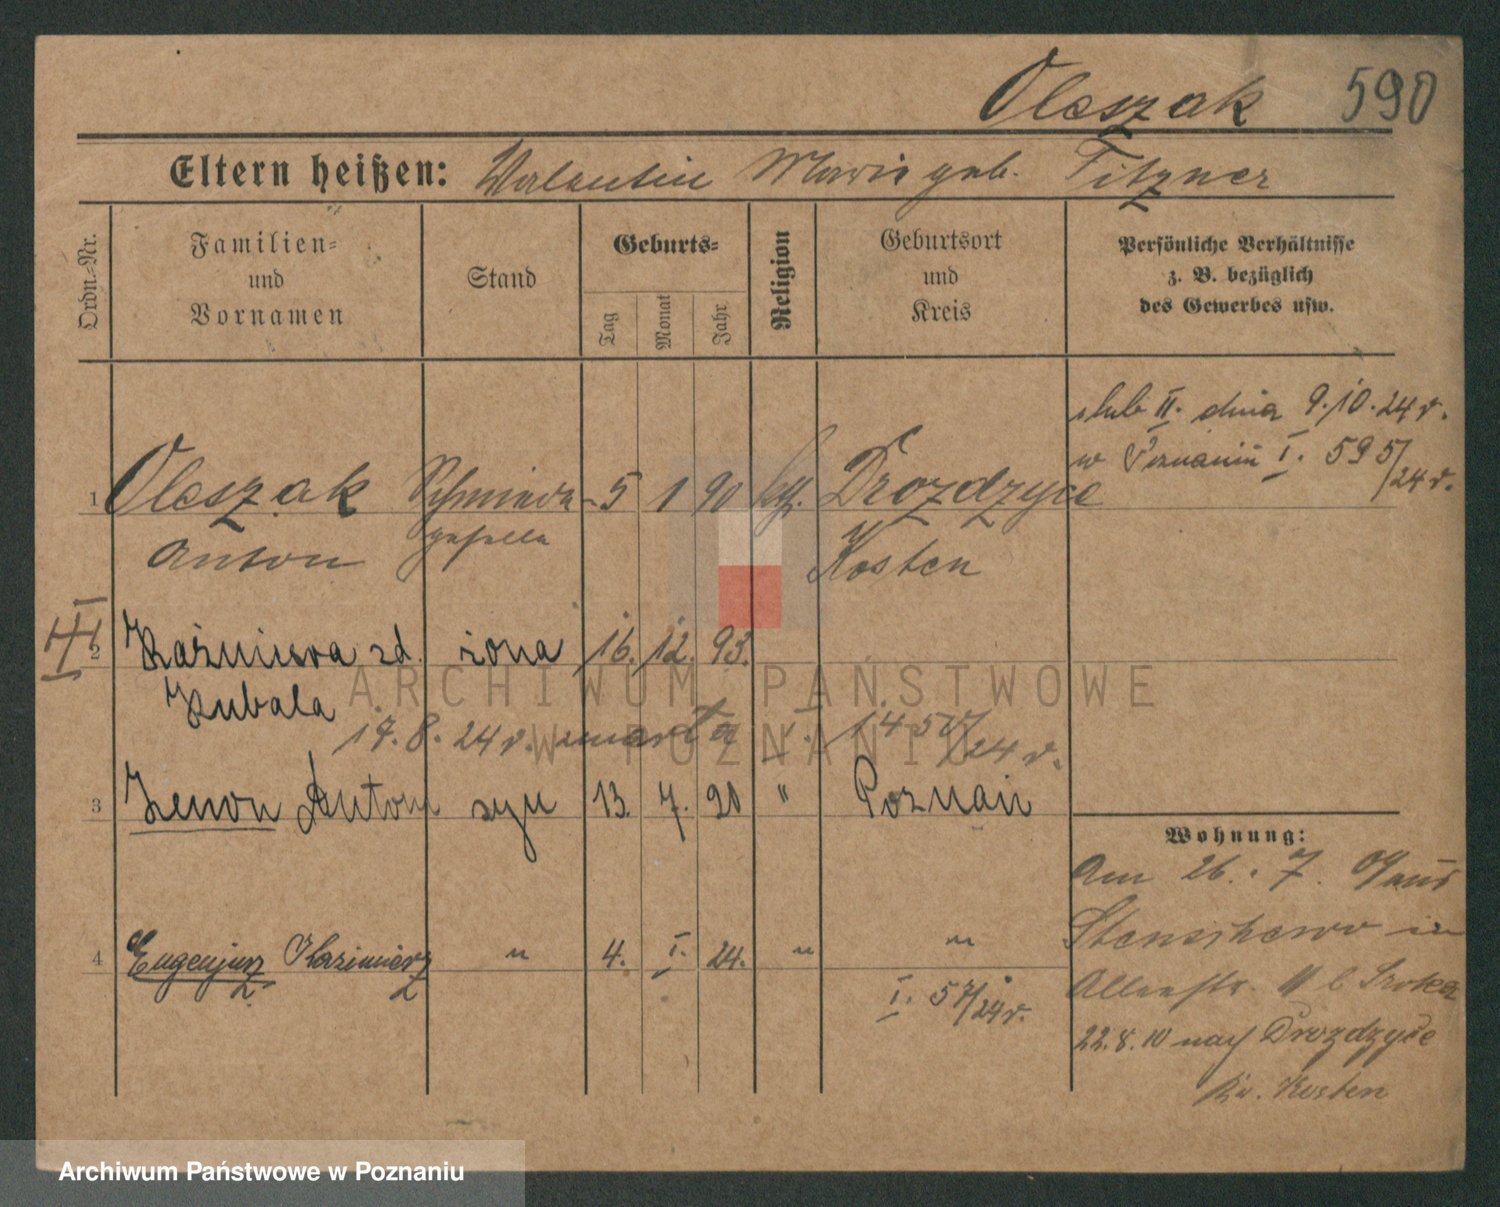 Oleszak 590
Eltern heißen: Valentin Marie geb. Titzner
Ordn.-Nr.
Familien-
und
Vornamen
Stand
Geburts-
Tag
Monat
Jahr
Religion
Geburtsort
und
Kreis
Persönliche Verhältnisse
z. B. bezüglich
des Gewerbes usw.
ślub II. dnia 9.10.24 r.
w Poznaniu I. 595/24 r.
1 Oleszak Schmiede- 5 1 90 kath. Drozdzyce
Anton geselle Kosten
2 Kaźmiera zd. żona 16. 12. 93.
Kubala
17. 8. 24 r. zmarła I. 1457/24 r.
3 Zenon Antoni syn 13. 7. 20 " Poznań
4 Eugenjusz Kazimierz " 4. I. 24. " "
I. 57/24 r.
Wohnung:
Am 26. 7. aus
in
Allerstr. 11 b. Sroka
22.8.10 nach Drozdzyce
Kr. Kosten
ARCHIWUM PAŃSTWOWE
W POZNANIU
Archiwum Państwowe w Poznaniu